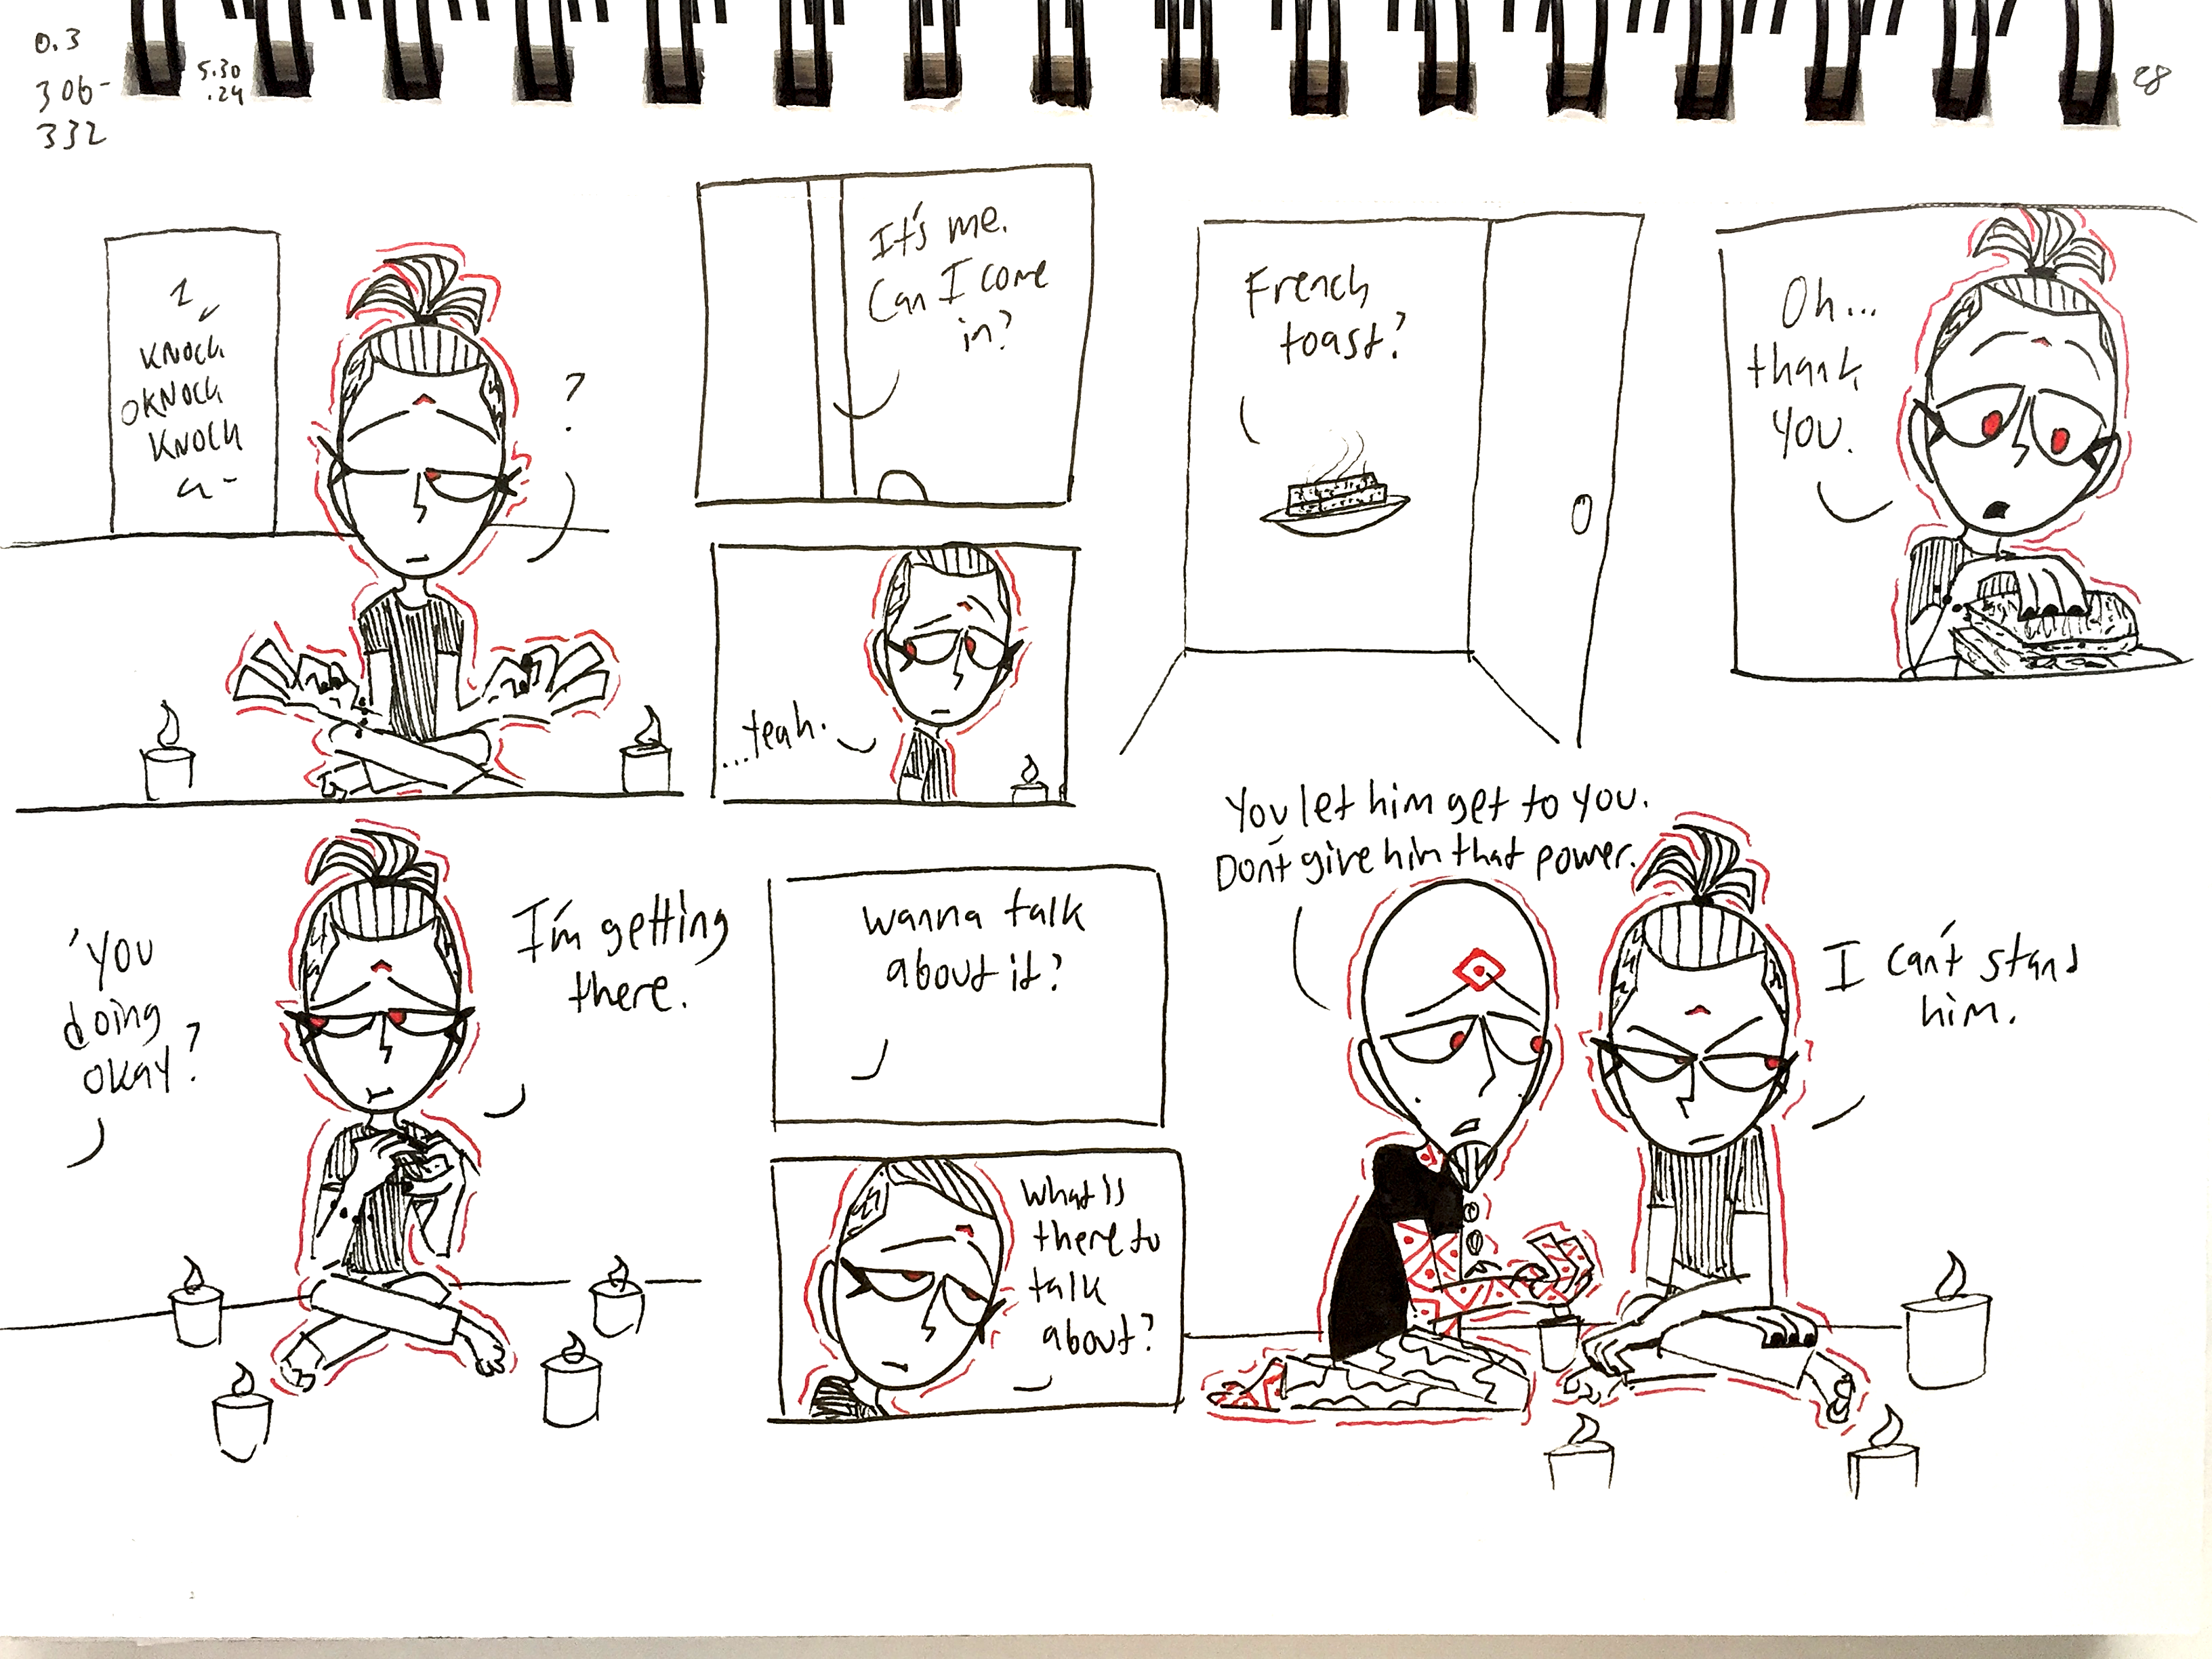 0.3
306-
332
5.30
.24
28
KNOCK
KNOCK
KNOCK
?
It's me.
Can I come
in?
...Yeah.
French
toast?
Oh...
thank
you.
You
doing
okay?
I'm getting
there.
wanna talk
about it?
What is
there to
talk
about?
You let him get to you.
Don't give him that power.
I can't stand
him.